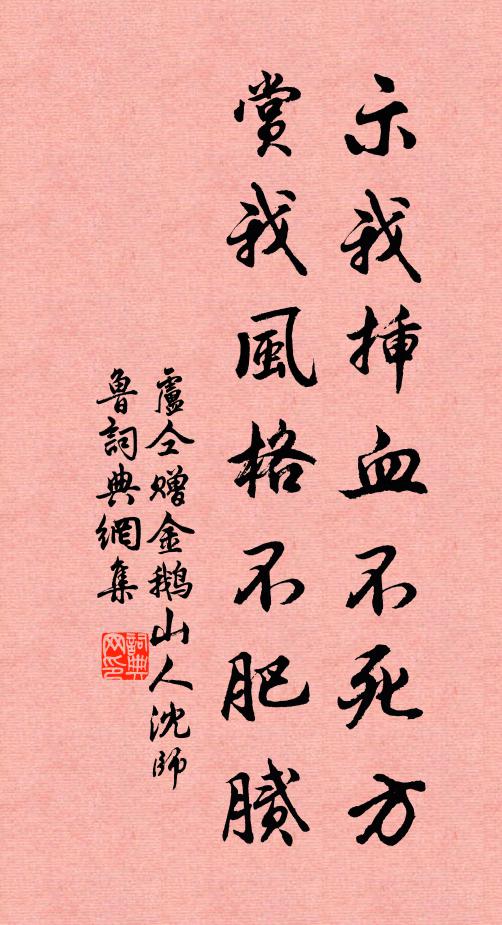 示我插血不死方
賞我風格不肥膩
盧仝贈金鵝山人沈師
魯詞典網集
詞典网印